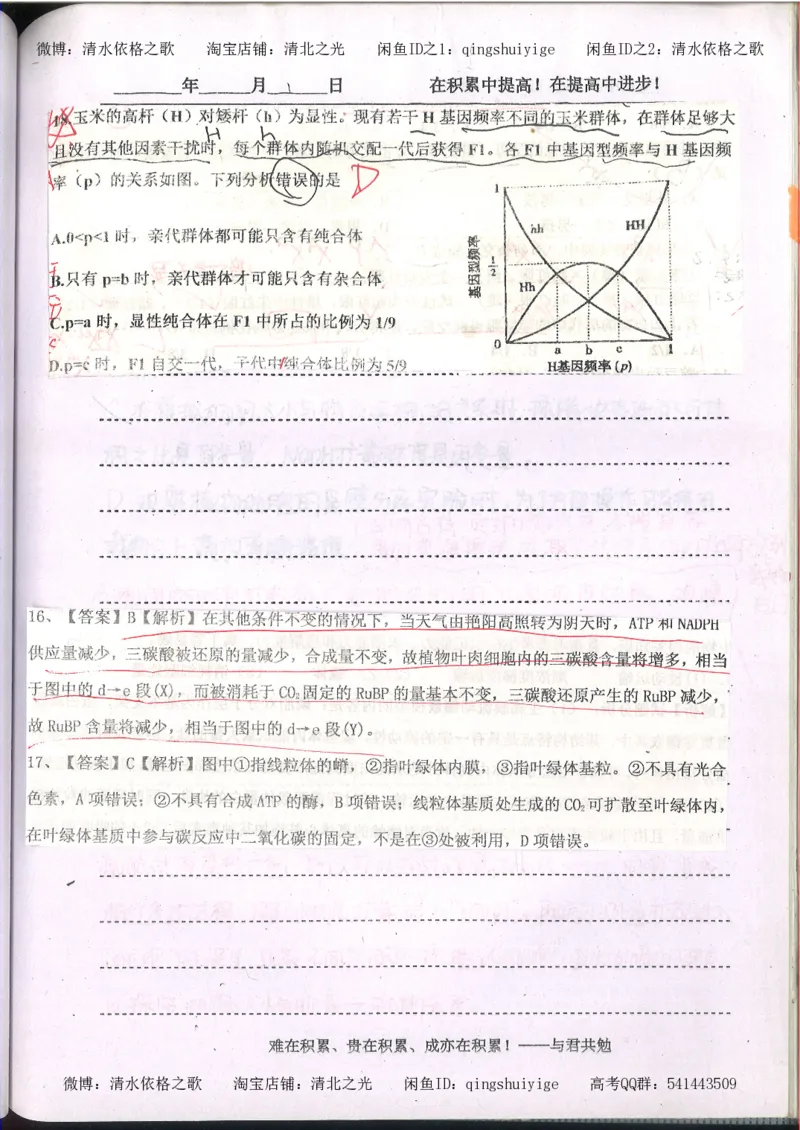 微博：清水依格之歌 淘宝店铺：清北之光 闲鱼ID之1：qingshuiyige 闲鱼ID之2：清水依格之歌
年 月 日 在积累中提高！在提高中进步！
18.玉米的高杆（H）对矮杆（h）为显性。现有若干H基因频率不同的玉米群体，在群体足够大
H h
且没有其他因素干扰时，每个群体内随机交配一代后获得F1。各F1中基因型频率与H基因频
率（p）的关系如图。下列分析错误的是 D
A.0<p<1时，亲代群体都可能只含有纯合体
B.只有p=b时，亲代群体才可能只含有杂合体
C.p=a时，显性纯合体在F1中所占的比例为1/9
D.p=c时，F1自交一代，子代中纯合体比例为5/9
基因型频率
1
hh HH
1/2
Hh
0 a b c 1
H基因频率(p)
16、【答案】B【解析】在其他条件不变的情况下，当天气由艳阳高照转为阴天时，ATP和NADPH
供应量减少，三碳酸被还原的量减少，合成量不变，故植物叶肉细胞内的三碳酸含量将增多，相当
于图中的d→e段(X)，而被消耗于CO₂固定的RuBP的量基本不变，三碳酸还原产生的RuBP减少，
故RuBP含量将减少，相当于图中的d→e段(Y)。
17、【答案】C【解析】图中①指线粒体的嵴，②指叶绿体内膜，③指叶绿体基粒。②不具有光合
色素，A项错误；②不具有合成ATP的酶，B项错误；线粒体基质处生成的CO₂可扩散至叶绿体内，
在叶绿体基质中参与碳反应中二氧化碳的固定，不是在③处被利用，D项错误。
难在积累、贵在积累、成亦在积累！——与君共勉
微博：清水依格之歌 淘宝店铺：清北之光 闲鱼ID：qingshuiyige 高考QQ群：541443509